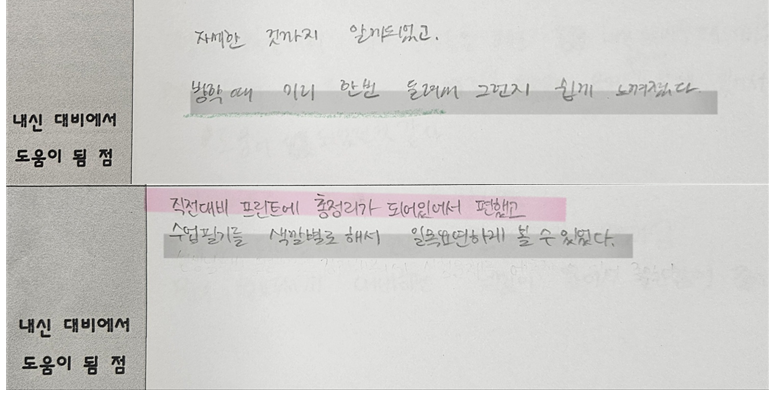 자세한 것까지 알게되었고.
방학때 미리 한번 들려서 그런지 쉽게 느껴졌다.
내신 대비에서
도움이 됨 점
직전대비 프린트에 총정리가 되어있어서 편했고
수업필기를 색깔별로 해서 일목요연하게 볼 수 있었다.
내신 대비에서
도움이 됨 점